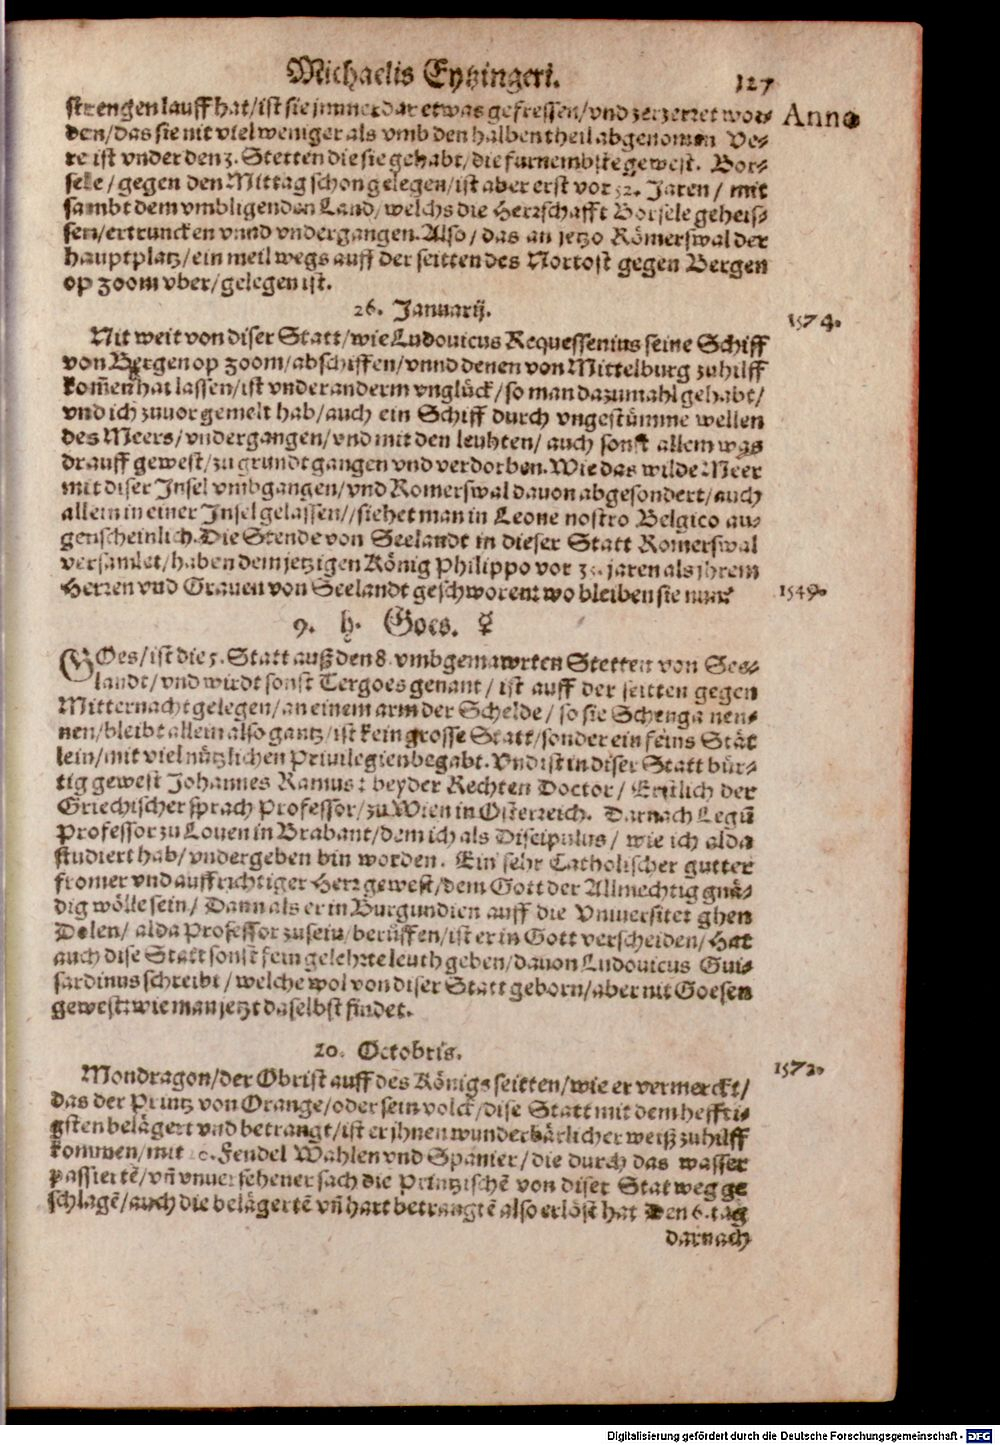 Michaelis Eytzingeri. 127
Anno
strengen lauff hat/ist sie jmmerdar etwas gefressen/vnd zerzerret wor-
den/das sie nit viel weniger als vmb den halben theil abgenomen Ve-
re ist vnder den 3. Stetten die sie gehabt/die fürnembste gewest. Bor-
sele/gegen den Mittag schon gelegen/ist aber erst vor 52. Jaren/mit
sambt dem vmbligenden Land/welchs die Herrschafft Borsele geheis-
sen/ertruncken vnnd vndergangen. Also/das an jetzo Römerswal der
hauptplatz/ein meil wegs auff der seitten des Nortost gegen Bergen
op zoom vber/gelegen ist.
26. Januarij.
1574.
Nit weit von diser Statt/wie Ludouicus Requessenius seine Schiff
von Bergen op zoom/abschiffen/vnnd denen von Mittelburg zu hilff
kom̃en hat lassen/ist vnder anderm vnglück/so man dazumahl gehabt/
vnd ich zuuor gemelt hab/auch ein Schiff durch vngestümme wellen
des Meers/vndergangen/vnd mit den leuhten/auch sonst allem was
drauff gewest/zu grundt gangen vnd verdorben. Wie das wilde Meer
mit diser Insel vmbgangen/vnd Romerswal dauon abgesondert/auch
allein in einer Insel gelassen//siehet man in Leone nostro Belgico au-
genscheinlich. Die Stende von Seelandt in dieser Statt Romerswal
versamlet/haben dem jetzigen König Philippo vor jaren als jhrem
Herren vnd Grauen von Seelandt geschworen: wo bleiben sie nun?
1549.
9. ♄. Goes. ☿
GOes/ist die 5. Statt auß den 8. vmbgemawrten Stetten von See-
landt/vnd wirdt sonst Tergoes genant/ist auff der seitten gegen
Mitternacht gelegen/an einem arm der Schelde/so sie Schenga nen-
nen/bleibt allein also gantz/ist kein grosse Statt/sonder ein feins Stät
lein/mit viel nützlichen Priuilegien begabt. Vnd ist in diser Statt bür-
tig gewest Johannes Ramus: beyder Rechten Doctor/Erstlich der
Griechischer sprach Professor/zu Wien in Osterreich. Darnach Legũ
Professor zu Louen in Brabant/dem ich als Discipulus/wie ich alda
studiert hab/vndergeben bin worden. Ein sehr Catholischer gutter
fromer vnd auffrichtiger Herr gewest/dem Gott der Allmechtig gnä-
dig wölle sein/Dann als er in Burgundien auff die Vniuersitet ghen
Dolen/alda Professor zu sein/berüffen/ist er in Gott verscheiden/Hat
auch dise Statt sonst fein gelehrte leuth geben/dauon Ludouicus Gui-
sardinus schreibt/welche wol von diser Statt geborn/aber nit Goesen
gewest: wie man jetzt daselbst findet.
20. Octobris.
1572.
Mondragon/der Obrist auff des Königs seitten/wie er vermerckt/
das der Printz von Orange/oder sein volck/dise Statt mit dem heffti-
gsten belägert vnd betrangt/ist er jhnen wunderbärlicher weiß zu hilff
kommen/mit Fendel Wahlen vnd Spanier/die durch das wasser
passiertẽ/vñ vnuersehener sach die Printzischẽ von diser Stat weg ge
schlagẽ/auch die belägertẽ vñ hart betrangtẽ also erlöst hat Den 6. tag
darnach
Digitalisierung gefördert durch die Deutsche Forschungsgemeinschaft - DFG